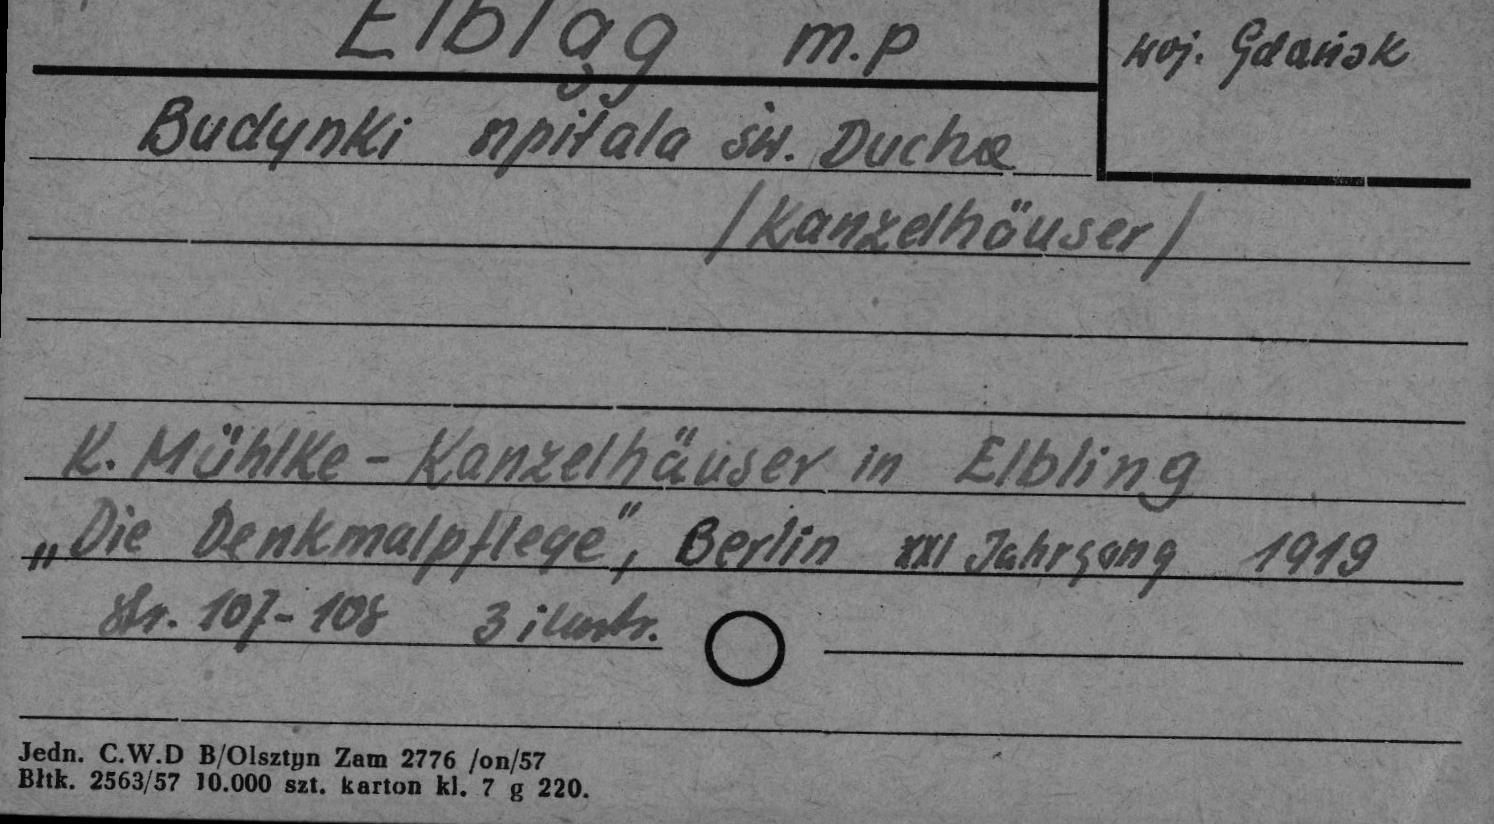 Elbląg m.p
woj. Gdańsk
Budynki szpitala św. Ducha
/Kanzelhäuser/
K. Mühlke - Kanzelhäuser in Elbling
„Die Denkmalpflege", Berlin XXI Jahrgang 1919
str. 107-108 3 ilustr.
Jedn. C.W.D B/Olsztyn Zam 2776 /on/57
Błtk. 2563/57 10.000 szt. karton kl. 7 g 220.